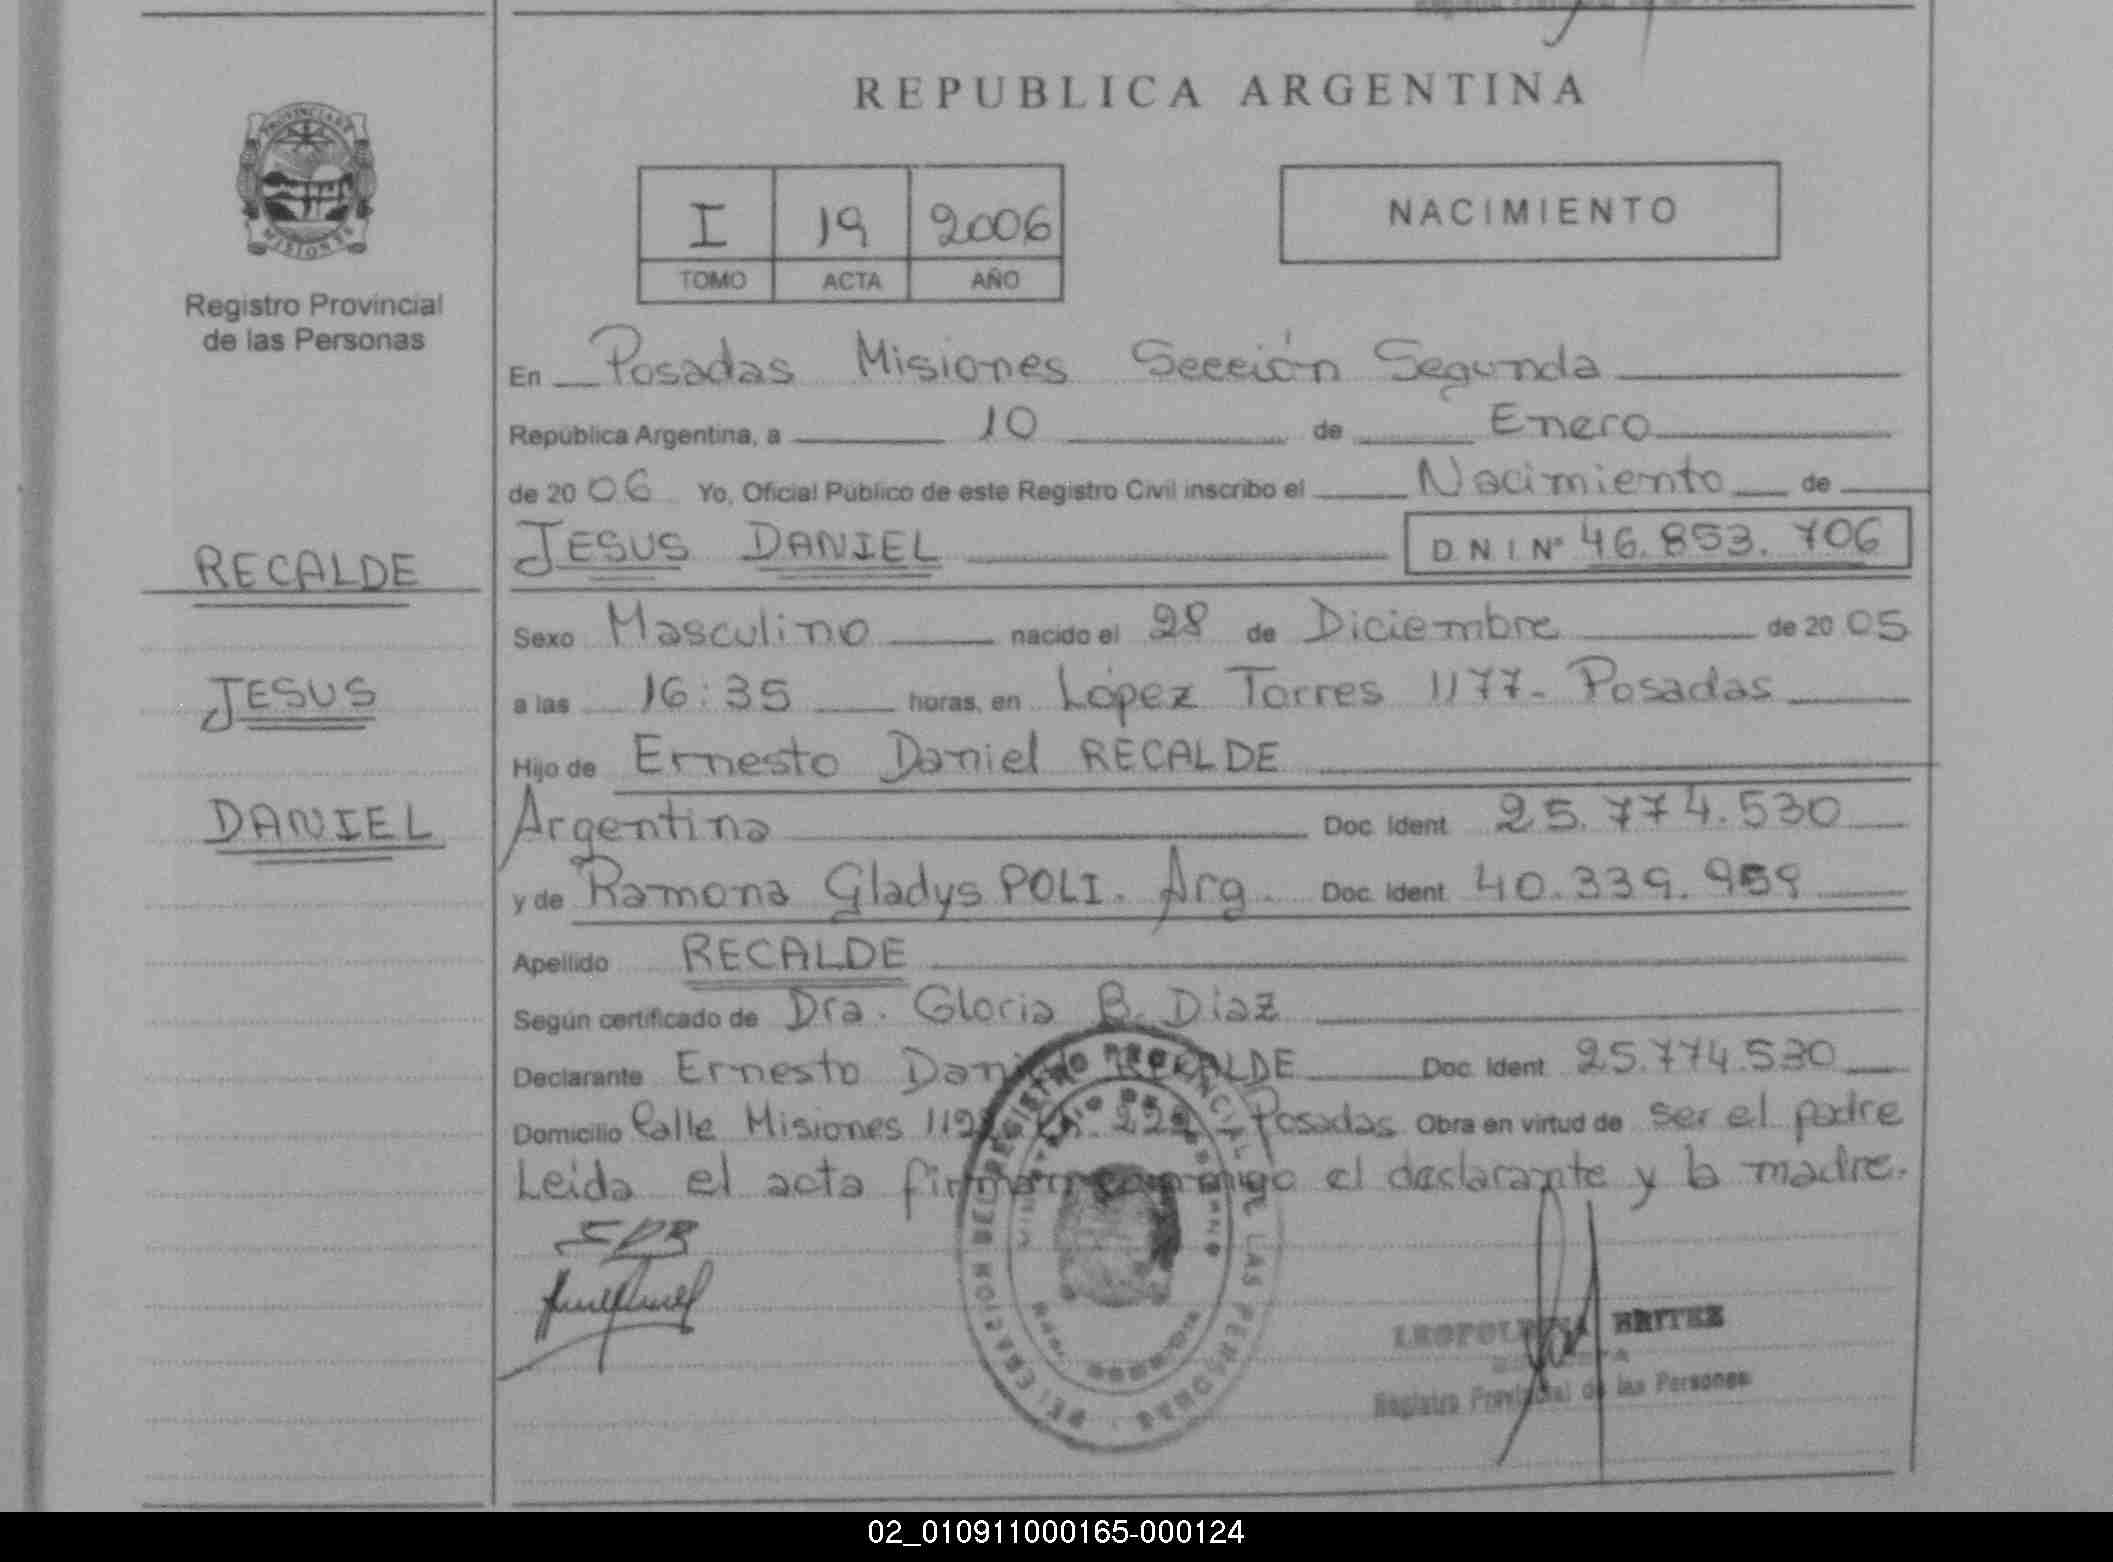 REPUBLICA ARGENTINA
PROVINCIA DE
MISIONES
Registro Provincial
de las Personas
I 19 2006
TOMO ACTA AÑO
NACIMIENTO
En Posadas Misiones Sección Segunda
República Argentina, a 10 de Enero
de 20 06 Yo, Oficial Público de este Registro Civil inscribo el Nacimiento de
JESUS DANIEL D N I Nº 46.853.706
RECALDE
JESUS
DANIEL
Sexo Masculino nacido el 28 de Diciembre de 20 05
a las 16:35 horas, en López Torres 1177- Posadas
Hijo de Ernesto Daniel RECALDE
Argentina Doc. Ident. 25.774.530
y de Ramona Gladys POLI. Arg. Doc. Ident. 40.339.959
Apellido RECALDE
Según certificado de Dra. Gloria B. Diaz
Declarante Ernesto Daniel RECALDE Doc. Ident. 25.774.530
Domicilio Calle Misiones Posadas Obra en virtud de ser el padre
Leida el acta firman conmigo el declarante y la madre.
EDR
REGISTRO PROVINCIAL DE LAS PERSONAS
BRITEZ
Registro Provincial de las Personas
02_010911000165-000124